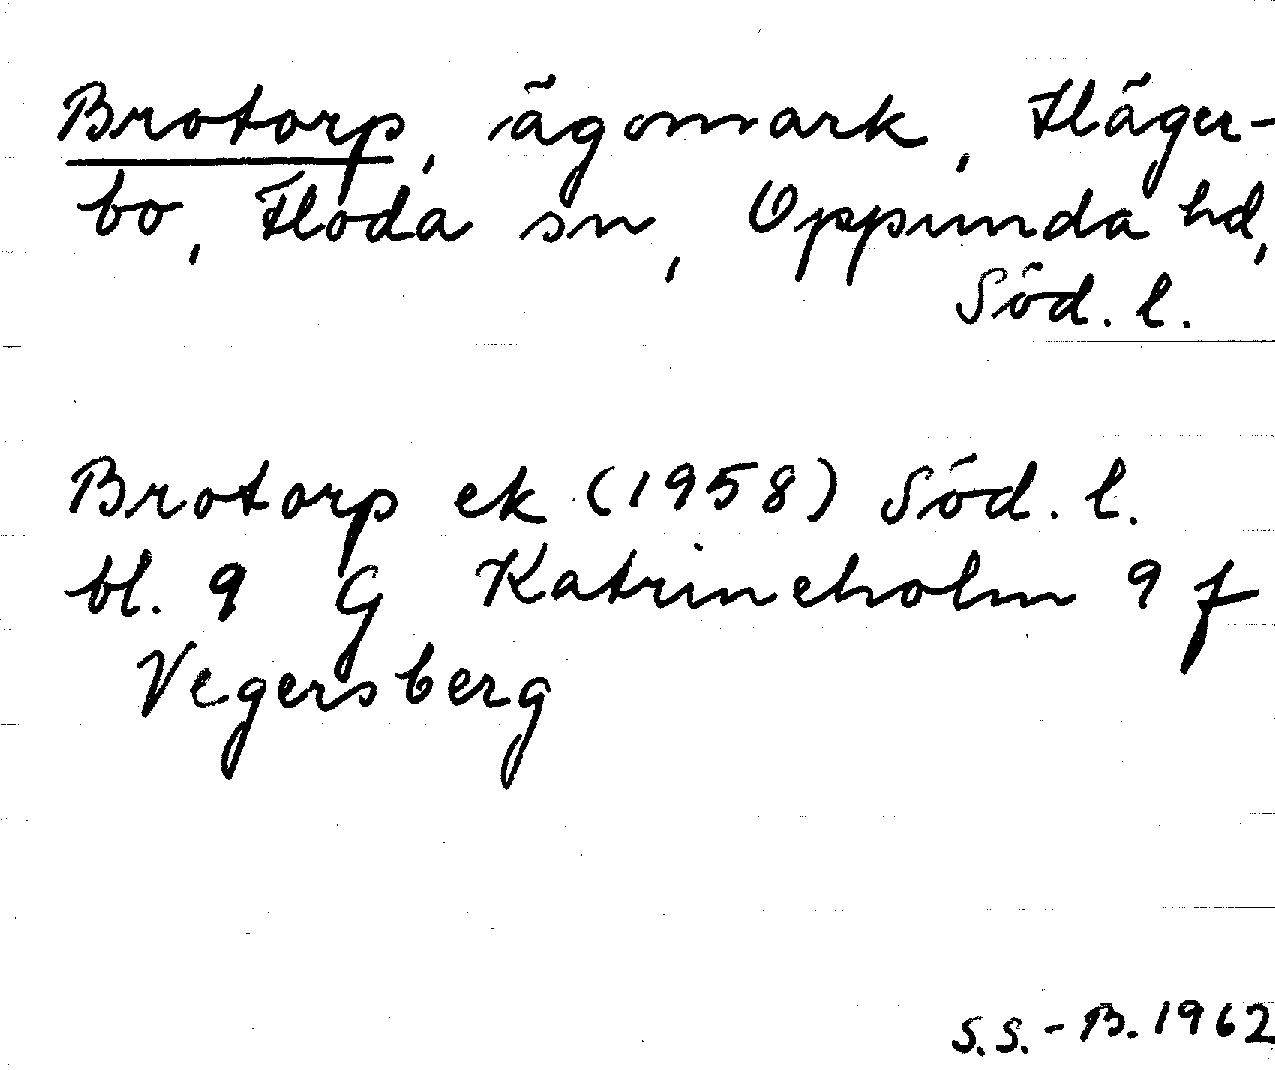 Brotorp, ägomark, Fläger-
bo, Floda sn, Oppunda hd,
Söd. l.
Brotorp ek (1958) Söd. l.
bl. 9 G Katrineholm 9 f
Vegersberg
S.S.-B. 1962